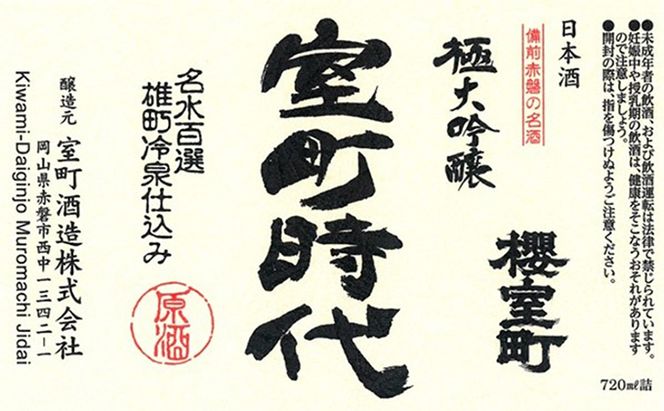 ●未成年者の飲酒、および飲酒運転は法律で禁じられています。
●妊娠中や授乳期の飲酒は、健康をそこなうおそれがあります
ので注意しましょう。
●開封の際は、指を傷つけぬようご注意ください。
日本酒
備前赤磐の名酒
極大吟醸
櫻室町
720ml詰
室町時代
名水百選
雄町冷泉仕込み
原酒
醸造元 室町酒造株式会社
岡山県赤磐市西中一三四二-一
Kiwami-Daiginjo Muromachi Jidai